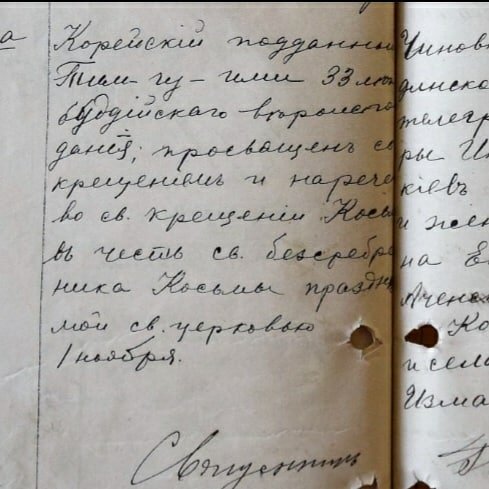 а
Корейскій подданны
Тим-гу-ими 33 лет
буддійскаго вѣроиспо
данія; просвѣщенъ св
крещеніемъ и нарече
во св. крещеніи Косьм
въ честь св. безсребре
ника Косьмы праздну
мой св. церковью
1 ноября.
Чинов
динско
телегр
ры И
кіевъ
и жен
на Е
Ко
и сел
Изма